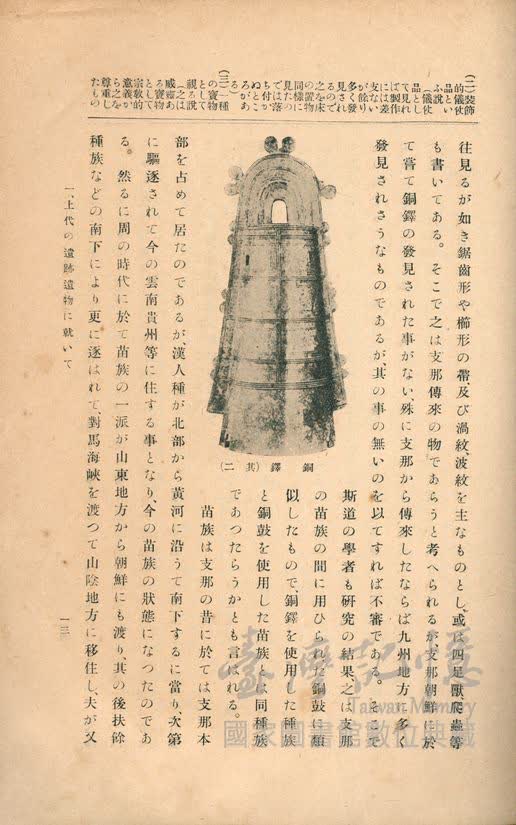 (二)装飾
的儀仗
品とい
ふ説
(儀仗
品とし
て見れ
ば製作
には差
支ない
が餘り
多く發
見され
るので
之を床
の置物
同樣に
見たの
では落
ち付か
ぬとこ
ろがあ
る)
(三)一種
の寶物
として
視る説
(之は
威靈あ
る寶物
として
宗敎的
意義か
ら之を
尊重し
たもの
往見るが如き鋸齒形や櫛形の帶及び渦紋、波紋を主なものとし、或は四足獸爬蟲等
も書いてある。そこで之は支那傳來の物であらうと考へられるが、支那朝鮮に於
て嘗て銅鐸の發見された事がない、殊に支那から傳來したならば九州地方に多く
發見されさうなものであるが、其の事の無いのを以てすれば不審である。そこで
斯道の學者も研究の結果、之は支那
の苗族の間に用ひられた銅鼓に類
似したもので、銅鐸を使用した種族
と銅鼓を使用した苗族とは同種族
であつたらうかとも言はれる。
苗族は支那の昔に於ては支那本
銅鐸(其二)
部を占めて居たのであるが、漢人種が北部から黃河に沿うて南下するに當り、次第
に驅逐されて今の雲南貴州等に住する事となり、今の苗族の狀態になつたのであ
る。然るに周の時代に於て苗族の一派が山東地方から朝鮮にも渡り其の後扶餘
種族などの南下により更に逐はれて、對馬海峽を渡つて山陰地方に移住し、夫が又
一、上代の遺跡遺物に就いて
一三
臺灣記憶
Taiwan Memory
國家圖書館數位典藏